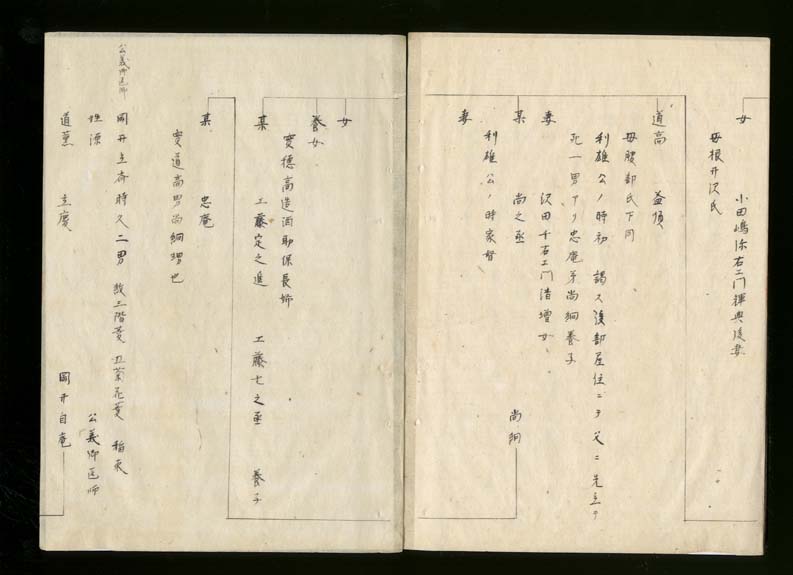 女 小田嶋源右エ門輝典後妻
母根井沢氏
道高 益頂
母服部氏下同
利雄公ノ時初 謁又後部屋住ニテ父ニ先立テ
死一男アリ忠庵ヲ尚綱養子
妻 沢田千右エ門清増女
某 尚之丞 尚綱
利雄公ノ時家督
妻
女
養女
実徳高造酒助保長姉
某 工藤定之進 工藤七之丞 養子
某 忠庵
実道高男尚綱甥也
岡井立斎時久二男 紋三階菱 丑菊花菱
公義御医師
姓源
公義御医師
道薫 立慶 岡井自庵